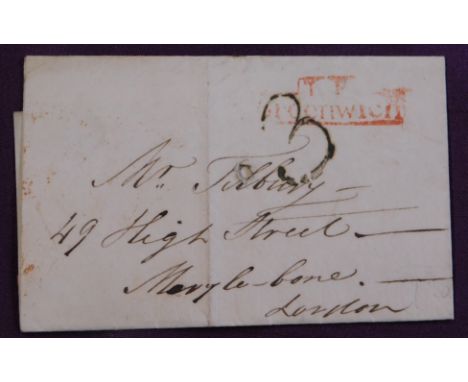 T.P
Greenwich
3
Mr. Tilbury
49 High Street
Maryle-bone.
London